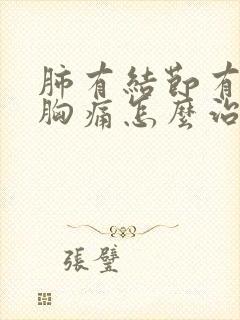 肺有結節有
胸痛怎麼治
張璧